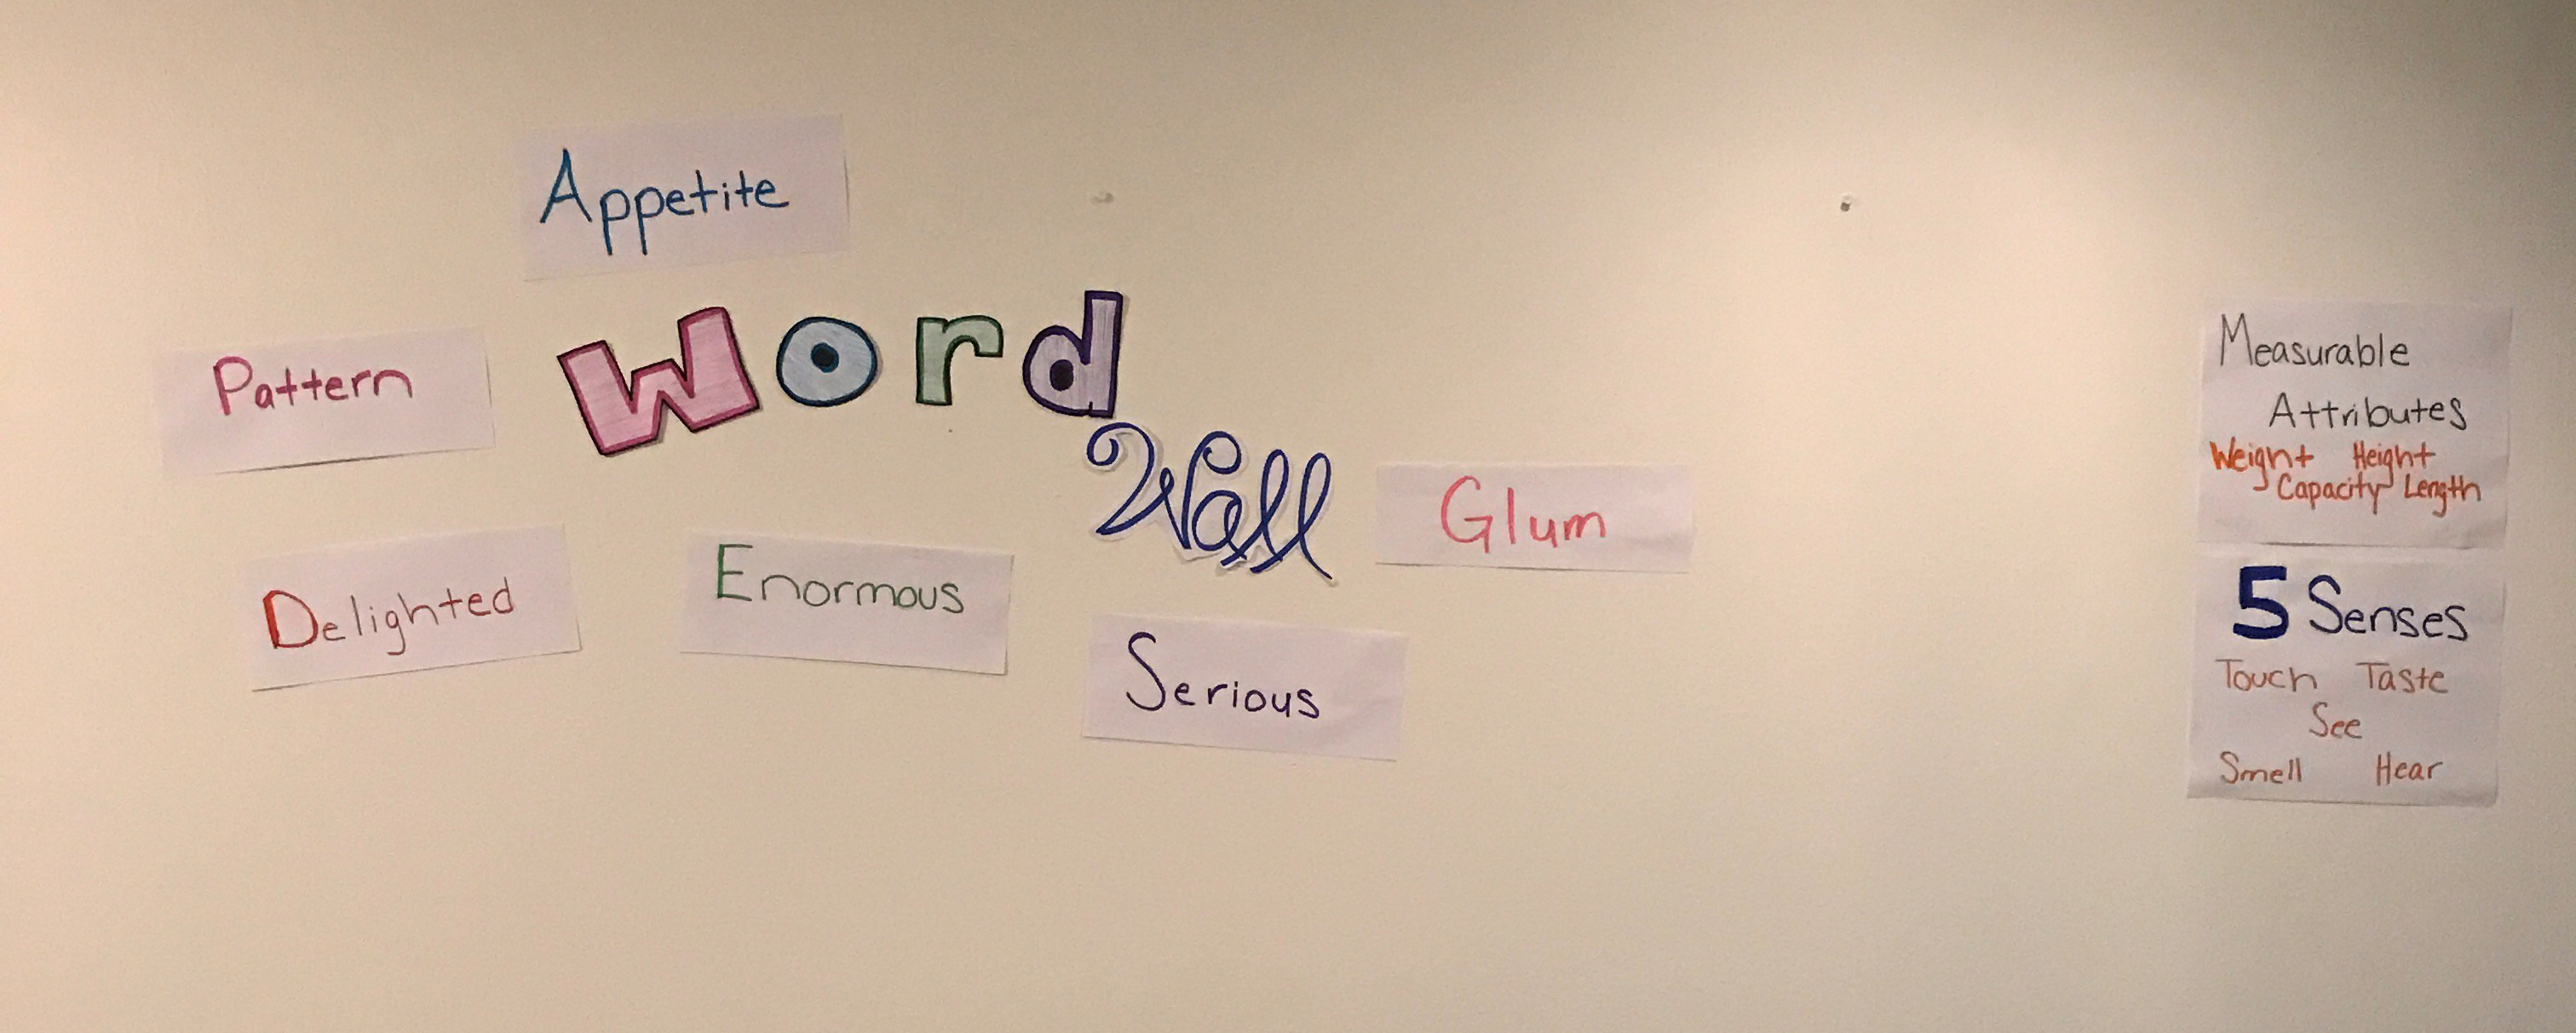 Appetite
Word
Wall
Pattern
Delighted
Enormous
Serious
Glum
Measurable
Attributes
Weight Height
Capacity Length
5 Senses
Touch Taste
See
Smell Hear